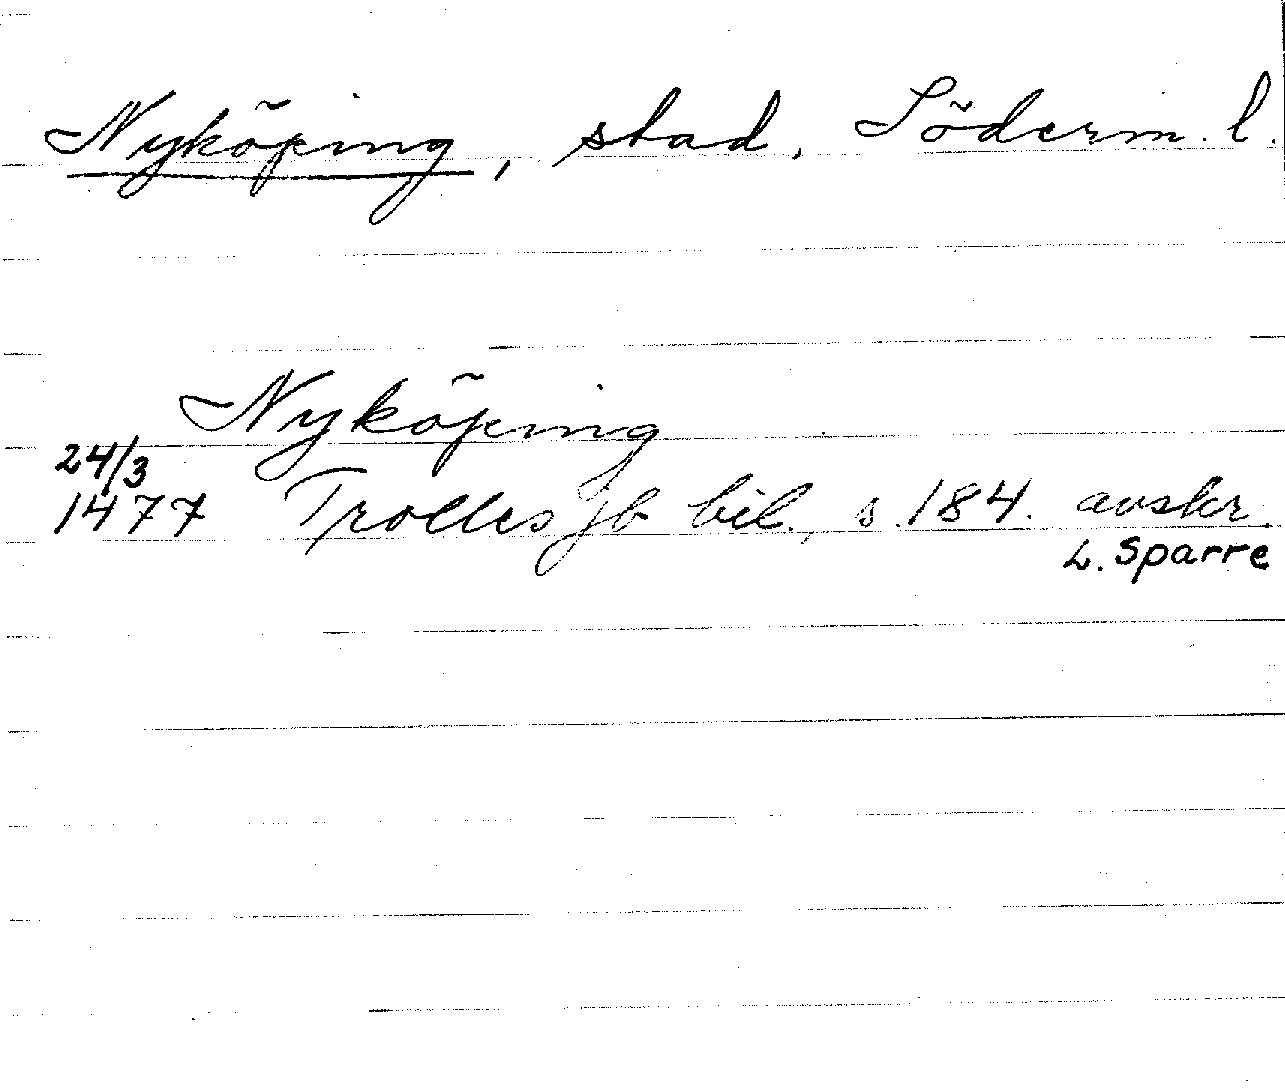 Nyköping, stad, Söderm. l.
Nyköping
24/3
1477 Trolles jb bil., s. 184. avskr.
L. Sparre